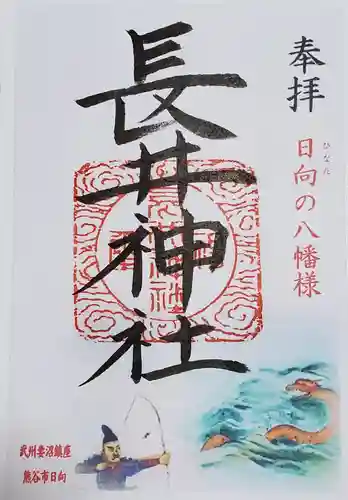 奉拝
日向の八幡様
ひなた
長井神社
武州妻沼鎮座
熊谷市日向